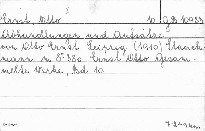 Ernst, Otto 10 GB 10933
Abhandlungen und Aufsätze
von Otto Ernst Leipzig (1910) Staack-
mann 8° 380. Ernst Otto Gesam-
melte Werke, Bd 10.